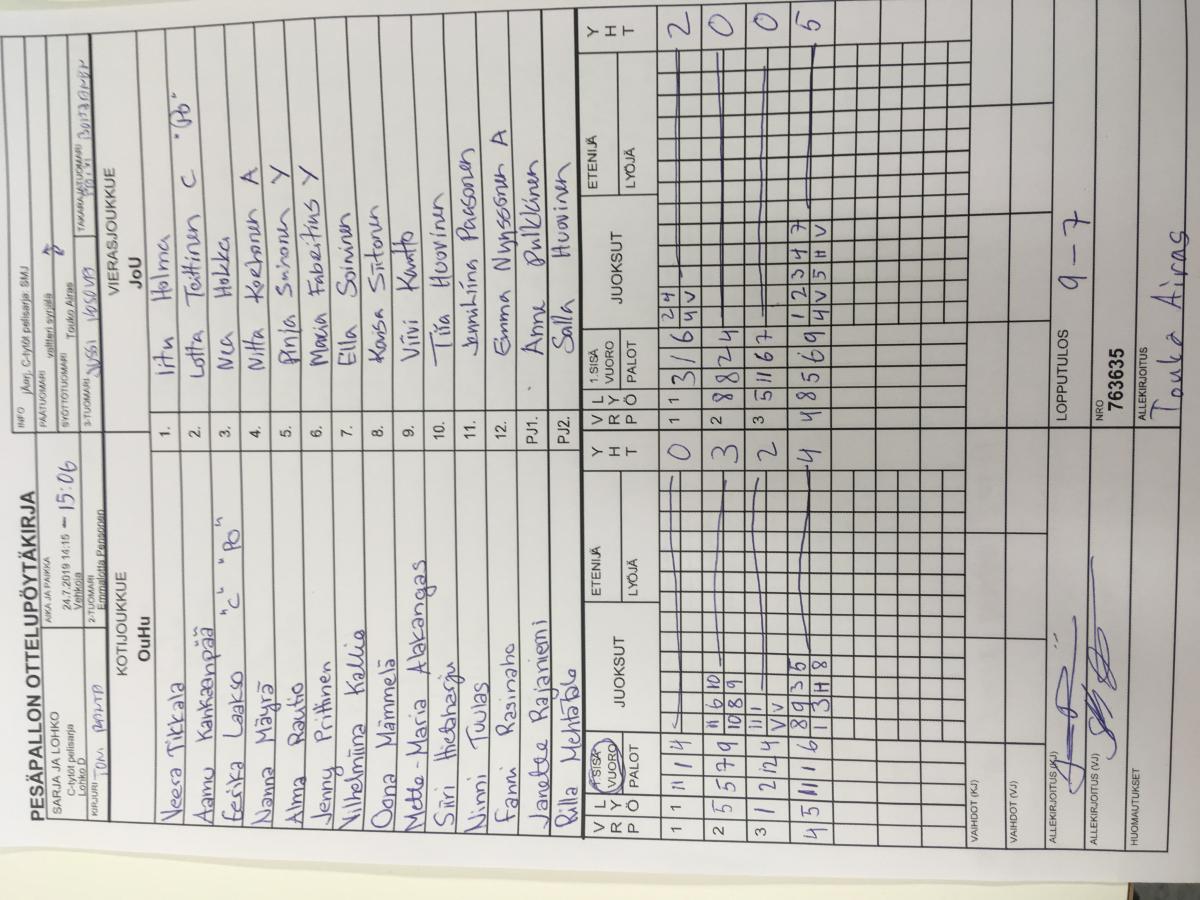 PESÄPALLON OTTELUPÖYTÄKIRJA
SARJA JA LOHKO
C-tytöt pelisarja
Lohko D
AIKA JA PAIKKA
24.7.2019 14:15 – 15:06
Vehkoja
INFO
C-tytöt pelisarja SMJ
PÄÄTUOMARI
valtteri syrjälä
SYÖTTÖTUOMARI
Touko Airas
KIRJURI
2-TUOMARI
Emmalotta Pensonen
3-TUOMARI
TAKARAJATUOMARI
KOTIJOUKKUE
OuHu
VIERASJOUKKUE
JoU
Veera Tikkala 1. Iitu Holma
Aamu Kankaanpää 2. Lotta Teittinen C "Po"
Eerika Laakso "C" "Po" 3. Nea Hokka
Nanna Mäyrä 4. Nitta Korhonen A
Alma Rautio 5. Pinja Sinonen Y
Jenny Piittinen 6. Maria Fabritius Y
Vilhelmiina Kallio 7. Ella Soininen
Oona Mämmelä 8. Kaisa Siitonen
Mette-Maria Alakangas 9. Viivi Kautto
Siiri Hietaharju 10. Tiia Huovinen
Ninni Tuulas 11. Jenniina Paasonen
Fanni Rasinaho 12. Emma Nyyssönen A
Janette Rajaniemi PJ1. Anne Pulkkinen
Rilla Mehtätalo PJ2. Salla Huovinen
V R P L Y Ö 1.SISÄ VUORO PALOT JUOKSUT ETENIJÄ LYÖJÄ Y H T
V R P L Y Ö 1.SISÄ VUORO PALOT JUOKSUT ETENIJÄ LYÖJÄ Y H T
1 1 11 1 4 0
1 1 3 1 6 2 4 2
4 V
2 5 5 7 9 11 6 10 3
10 8 9
2 8 8 2 4 0
3 1 2 12 4 11 1 2
V V
3 5 11 6 7 0
4 5 11 1 6 8 9 3 5 4
1 3 H 8
4 8 5 6 9 1 2 3 4 7 5
4 V 5 H V
VAIHDOT (KJ)
VAIHDOT (VJ)
ALLEKIRJOITUS (KJ)
LOPPUTULOS
9 – 7
ALLEKIRJOITUS (VJ)
NRO
763635
HUOMAUTUKSET
ALLEKIRJOITUS
Touko Airas